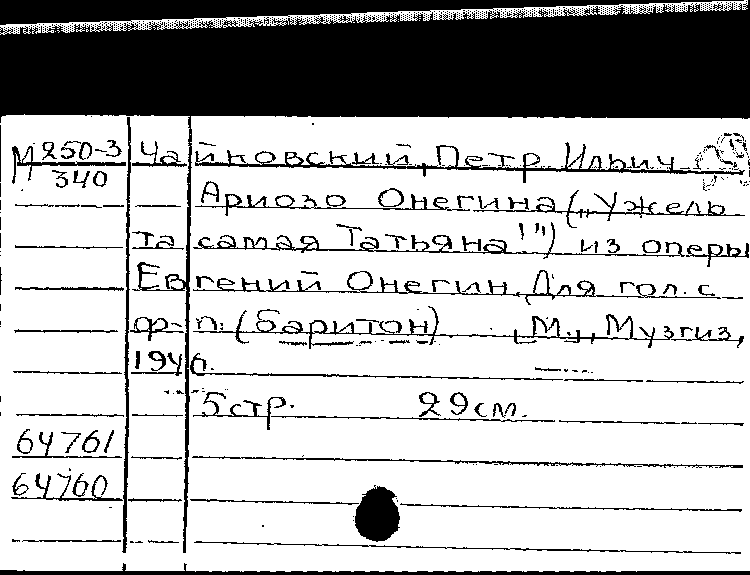 М 250-3 Чайковский, Петр Ильич
340
Ариозо Онегина („Ужель
та самая Татьяна!") из оперы
Евгений Онегин. Для гол. с
ф-п. (Баритон) М., Музгиз,
1946.
5 стр. 29 см.
64761
64760